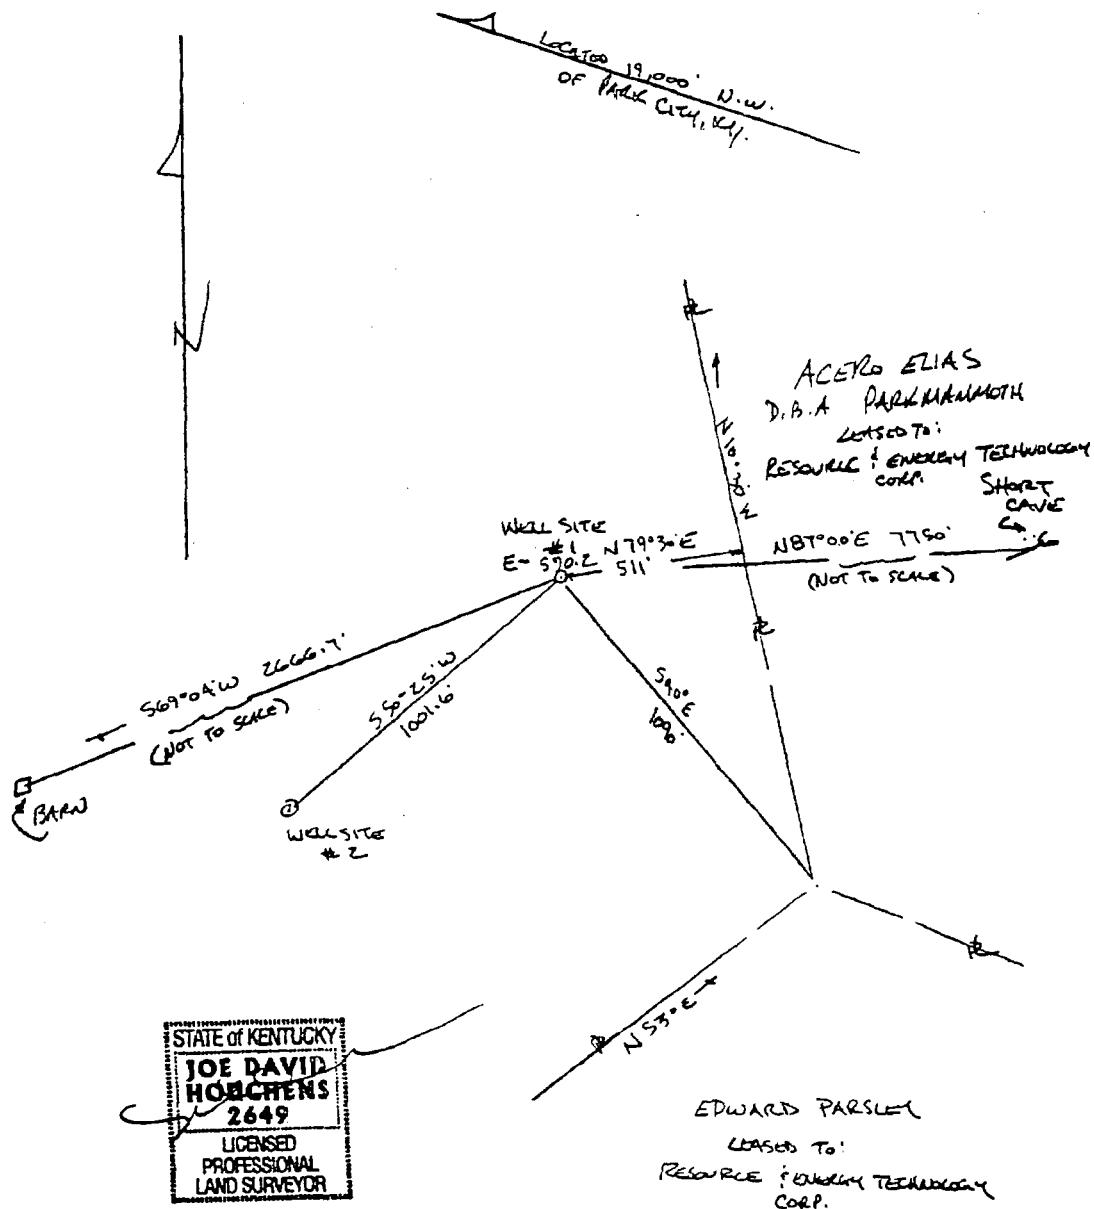 LOCATED 19,000' N.W.
OF PARK CITY, KY.
N
ACERO ELIAS
D.B.A PARKMAMMOTH
LEASED TO:
RESOURCE & ENERGY TECHNOLOGY
CORP.
SHORT
CAVE
N 10°30' W
WELL SITE
#1
E- 590.2
N 79°30'E
511'
N87°00'E 7750'
(NOT TO SCALE)
S69°04'W 2666.7'
(NOT TO SCALE)
S 50°25'W
1001.6'
S40°E
BARN
WELL SITE
# 2
N 53°E
STATE of KENTUCKY
JOE DAVID
HOUCHENS
2649
LICENSED
PROFESSIONAL
LAND SURVEYOR
EDWARD PARSLEY
LEASED TO:
RESOURCE & ENERGY TECHNOLOGY
CORP.